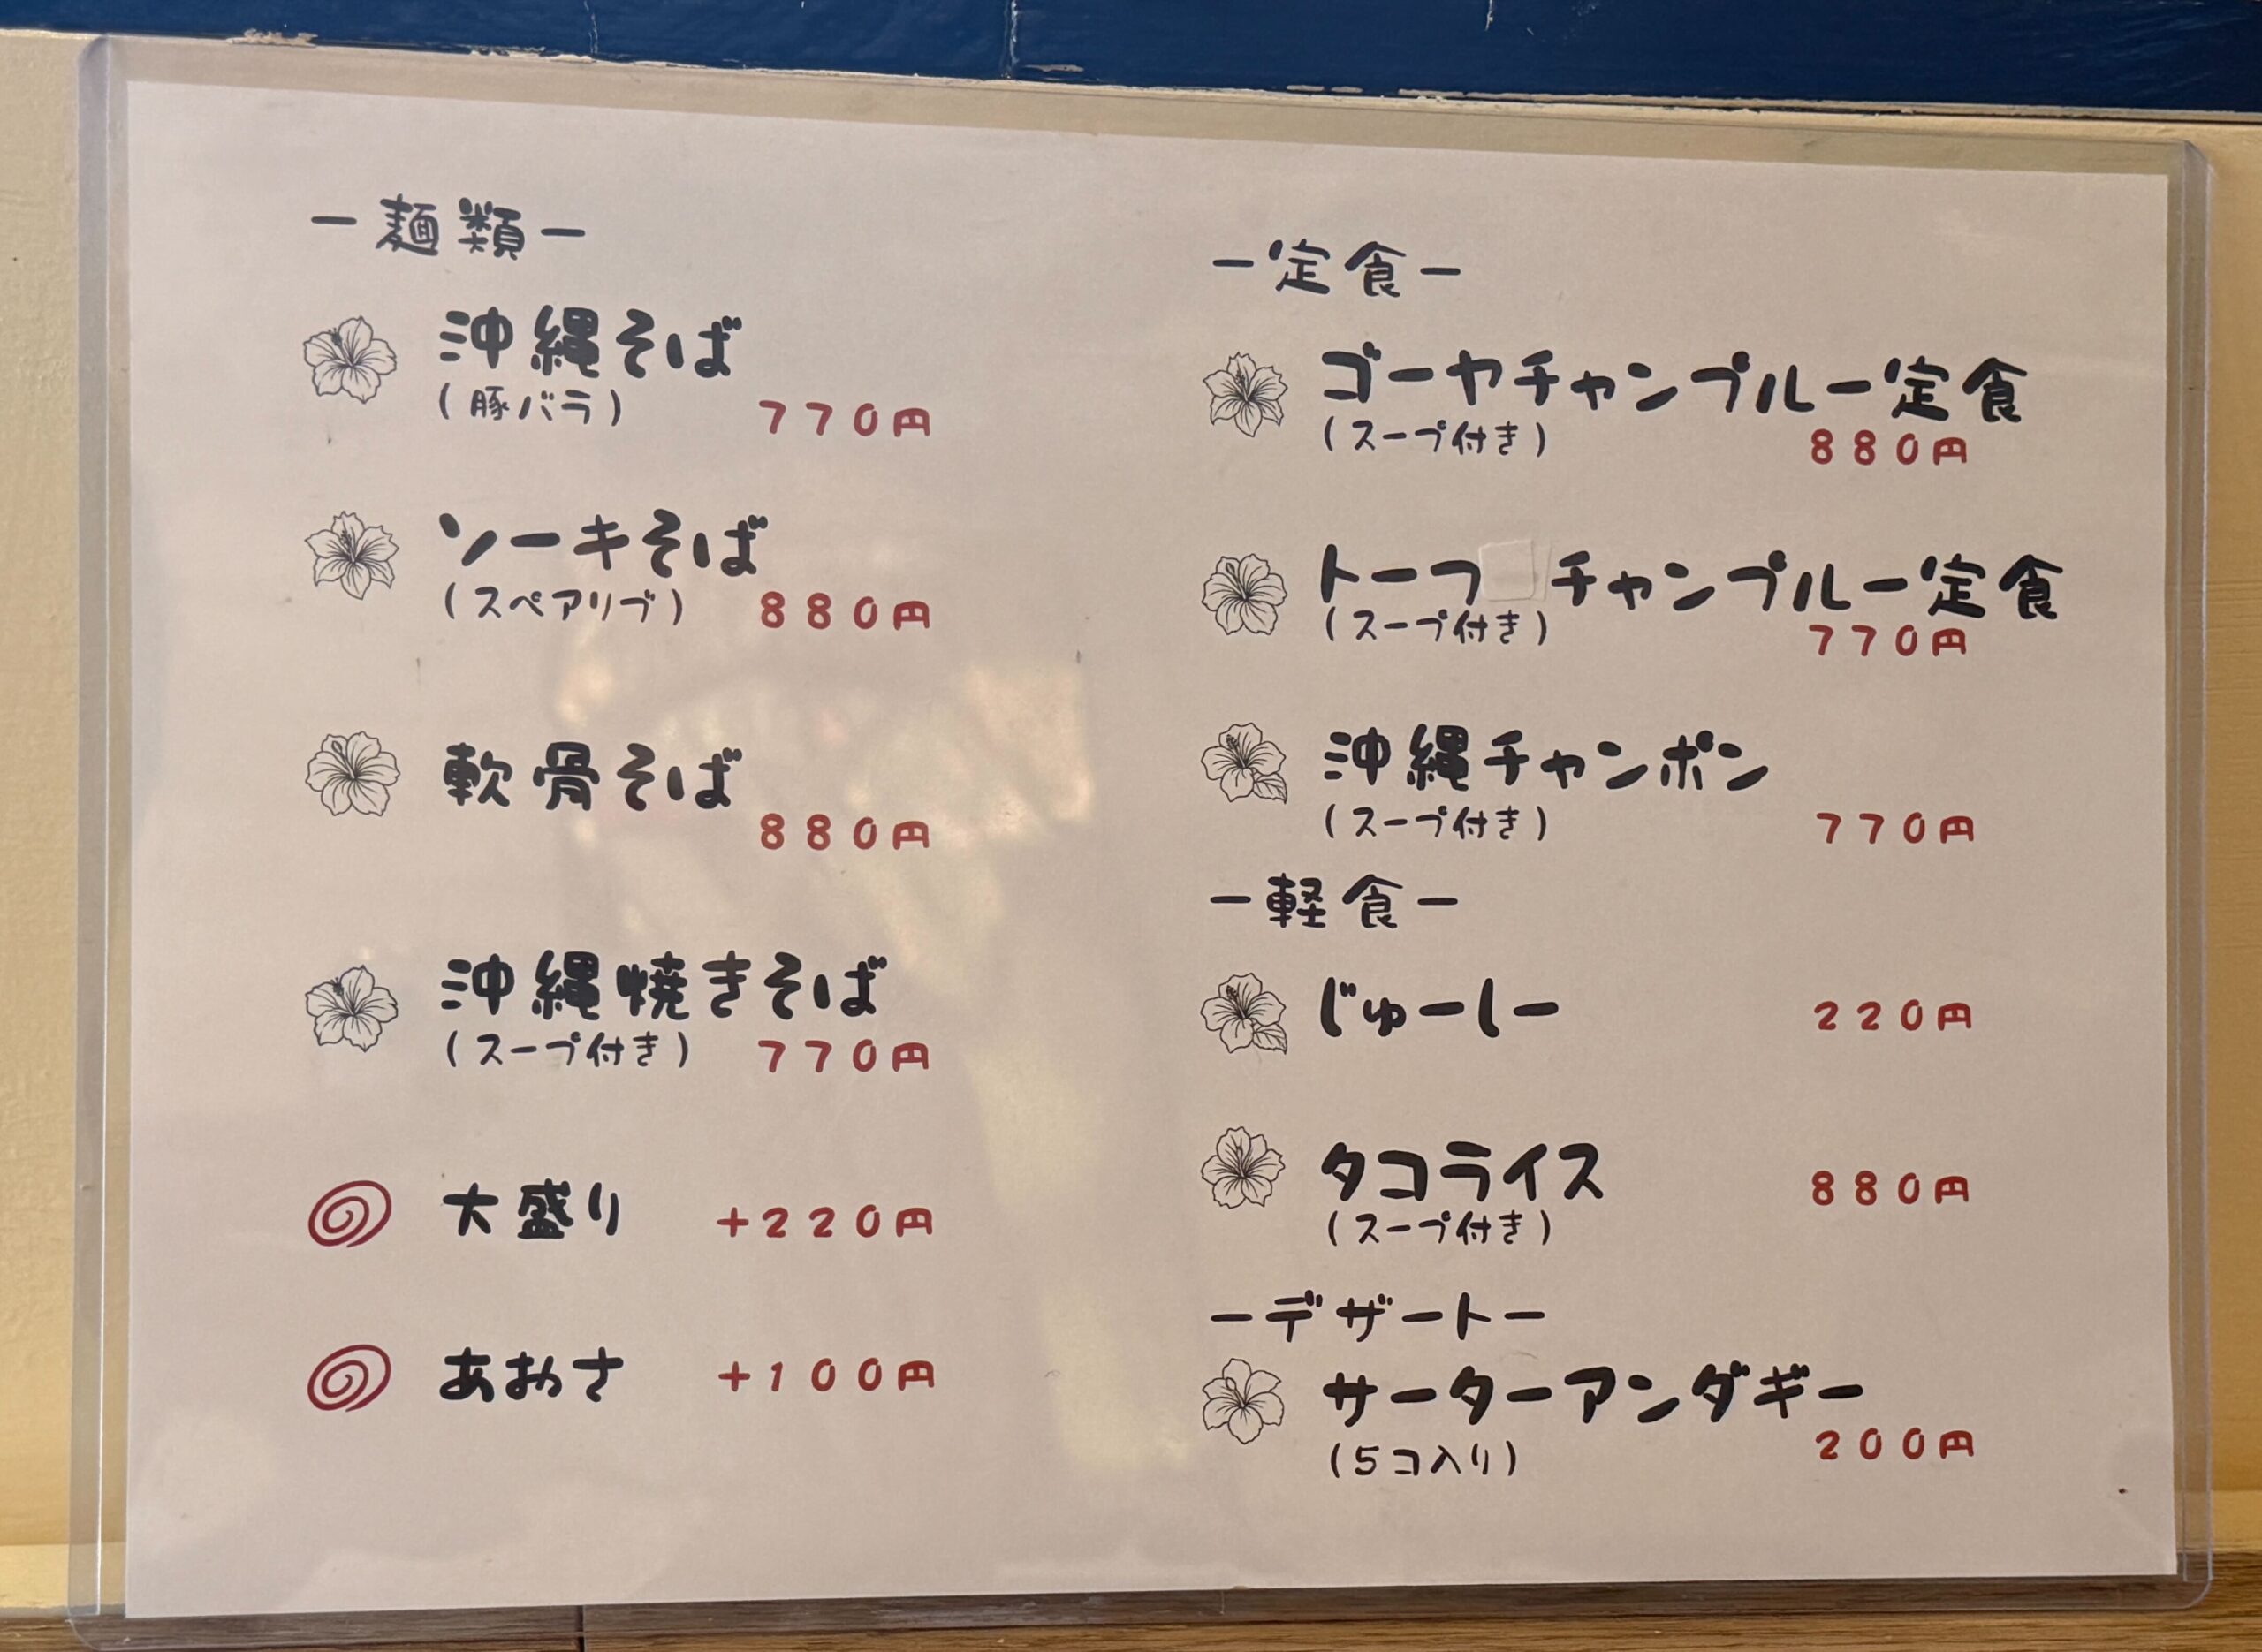 ー麺類ー
沖縄そば
(豚バラ)
770円
ソーキそば
(スペアリブ)
880円
軟骨そば
880円
沖縄焼きそば
(スープ付き)
770円
大盛り +220円
あおさ +100円
ー定食ー
ゴーヤチャンプルー定食
(スープ付き)
880円
トーフチャンプルー定食
(スープ付き)
770円
沖縄チャンポン
(スープ付き)
770円
ー軽食ー
じゅーしー 220円
タコライス 880円
(スープ付き)
ーデザートー
サーターアンダギー
(5コ入り)
200円